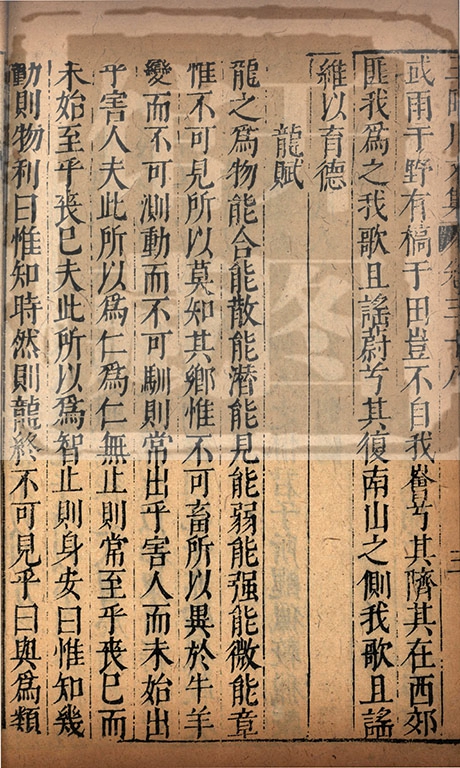 王臨川文集 卷三十八 三
或雨于野有槁于田豈不自我薈兮其隮其在西郊
匪我爲之我歌且謠蔚兮其復南山之側我歌且謠
維以育德
龍賦
龍之爲物能合能散能潛能見能弱能强能微能章
惟不可見所以莫知其鄉惟不可畜所以異於牛羊
變而不可測動而不可馴則常出乎害人而未始出
乎害人夫此所以爲仁爲仁無止則常至乎喪已而
未始至乎喪已夫此所以爲智止則身安曰惟知幾
動則物利曰惟知時然則龍終不可見乎曰與爲類